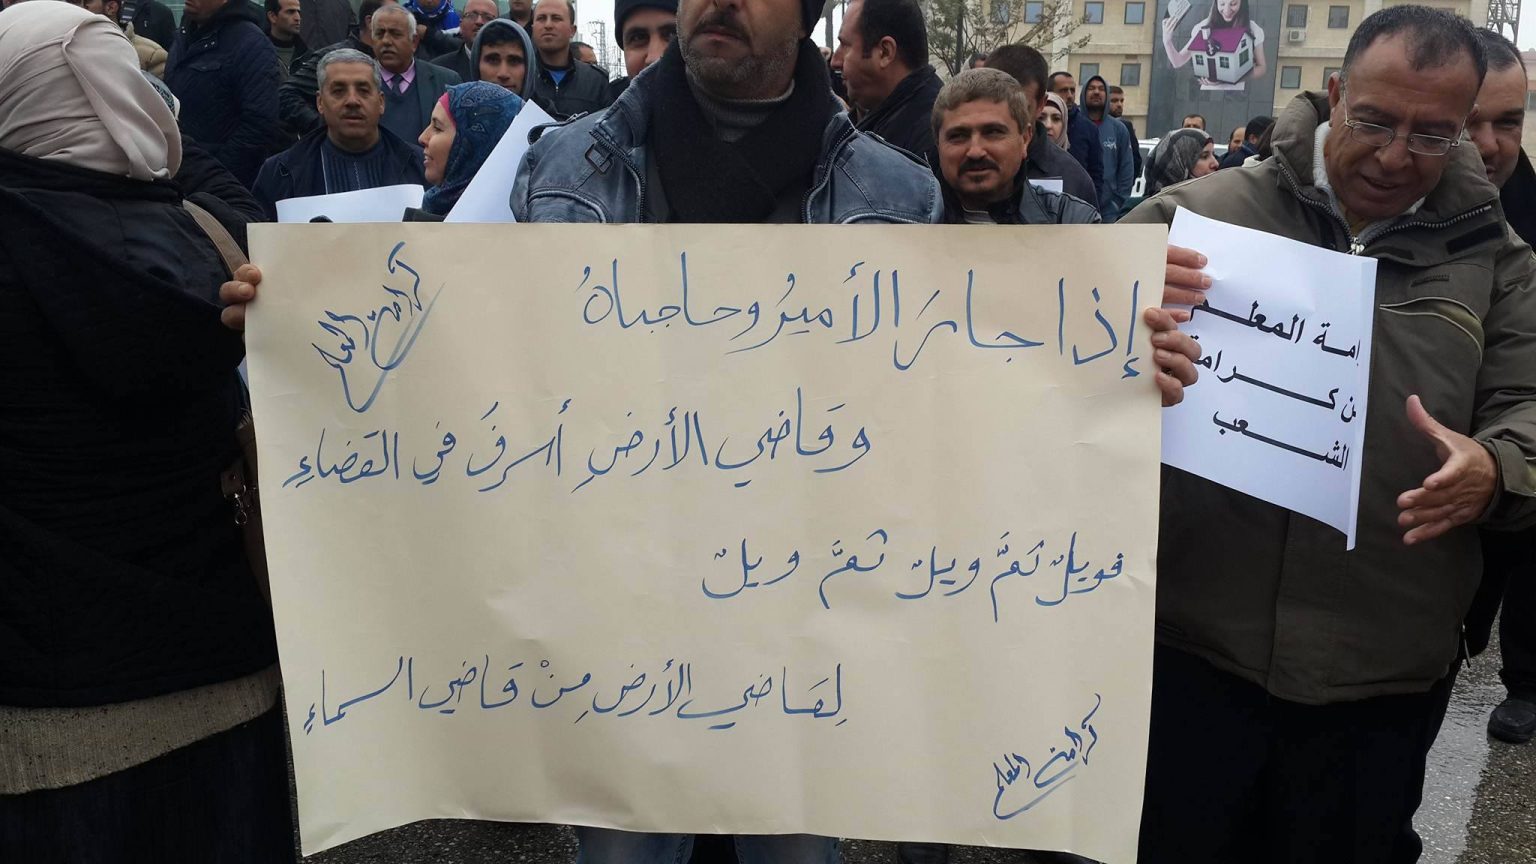 إذا جارَ الأميرُ وحاجباهُ
وقَاضي الأرضِ أسرفَ في القَضاءِ
فويلٌ ثمَّ ويلٌ ثمَّ ويلٌ
لِقَاضي الأرضِ مِنْ قَاضي السماءِ
كرامة المعلم
كرامة المعلم
امة المعلم
ن كرامة
الشعب